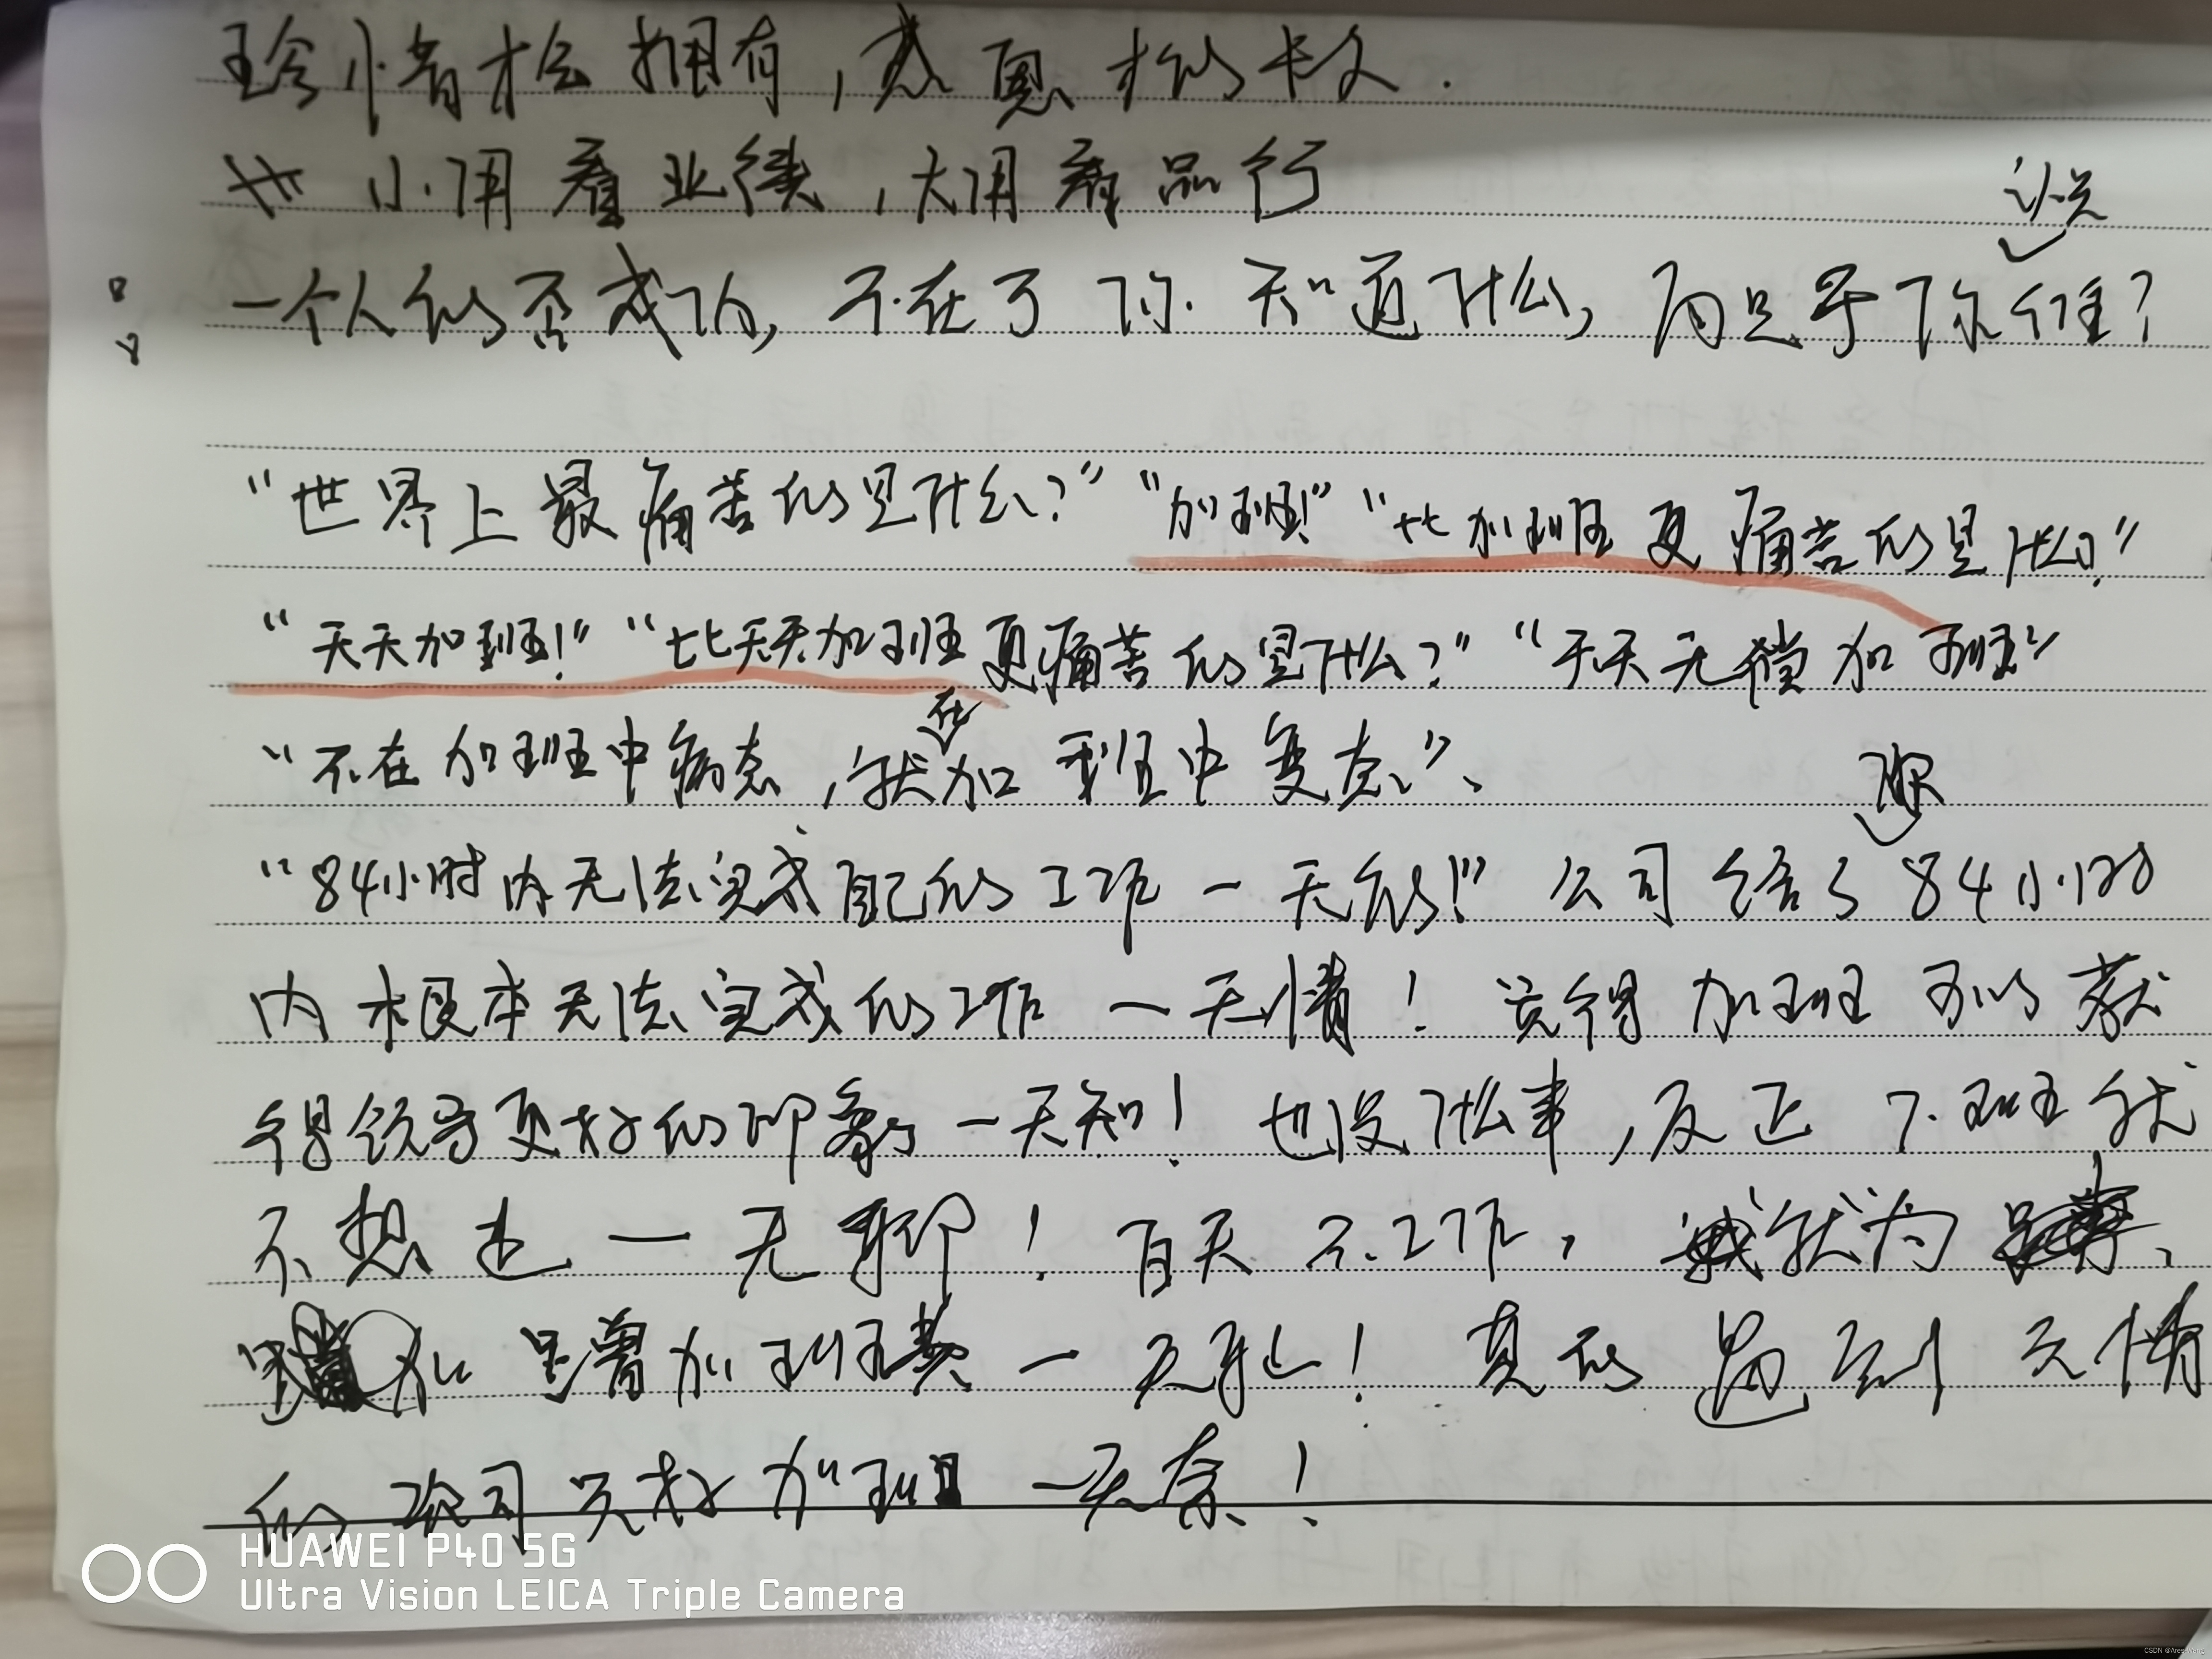 珍惜才会拥有,感恩才能长久.
小用看业绩,大用看品行
一个人能否成功,不在于你知道什么,而是于你认识谁?
“世界上最痛苦的是什么?”“加班!”“比加班更痛苦的是什么?”
“天天加班!”“比天天加班更痛苦的是什么?”“天天无偿加班”
“不在加班中病态,就在加班中变态”、
“84小时内无法完成自己的工作一无能!”公司给了84小时
内根本无法完成的工作一无情!觉得加班可以获
得领导更好的印象一无知!也没什么事,反正下班就
不想走一无聊!百天不工作,就为
是增加班费一无耻!真的遇到无情
的公司只好加班一无奈!
HUAWEI P40 5G
Ultra Vision LEICA Triple Camera